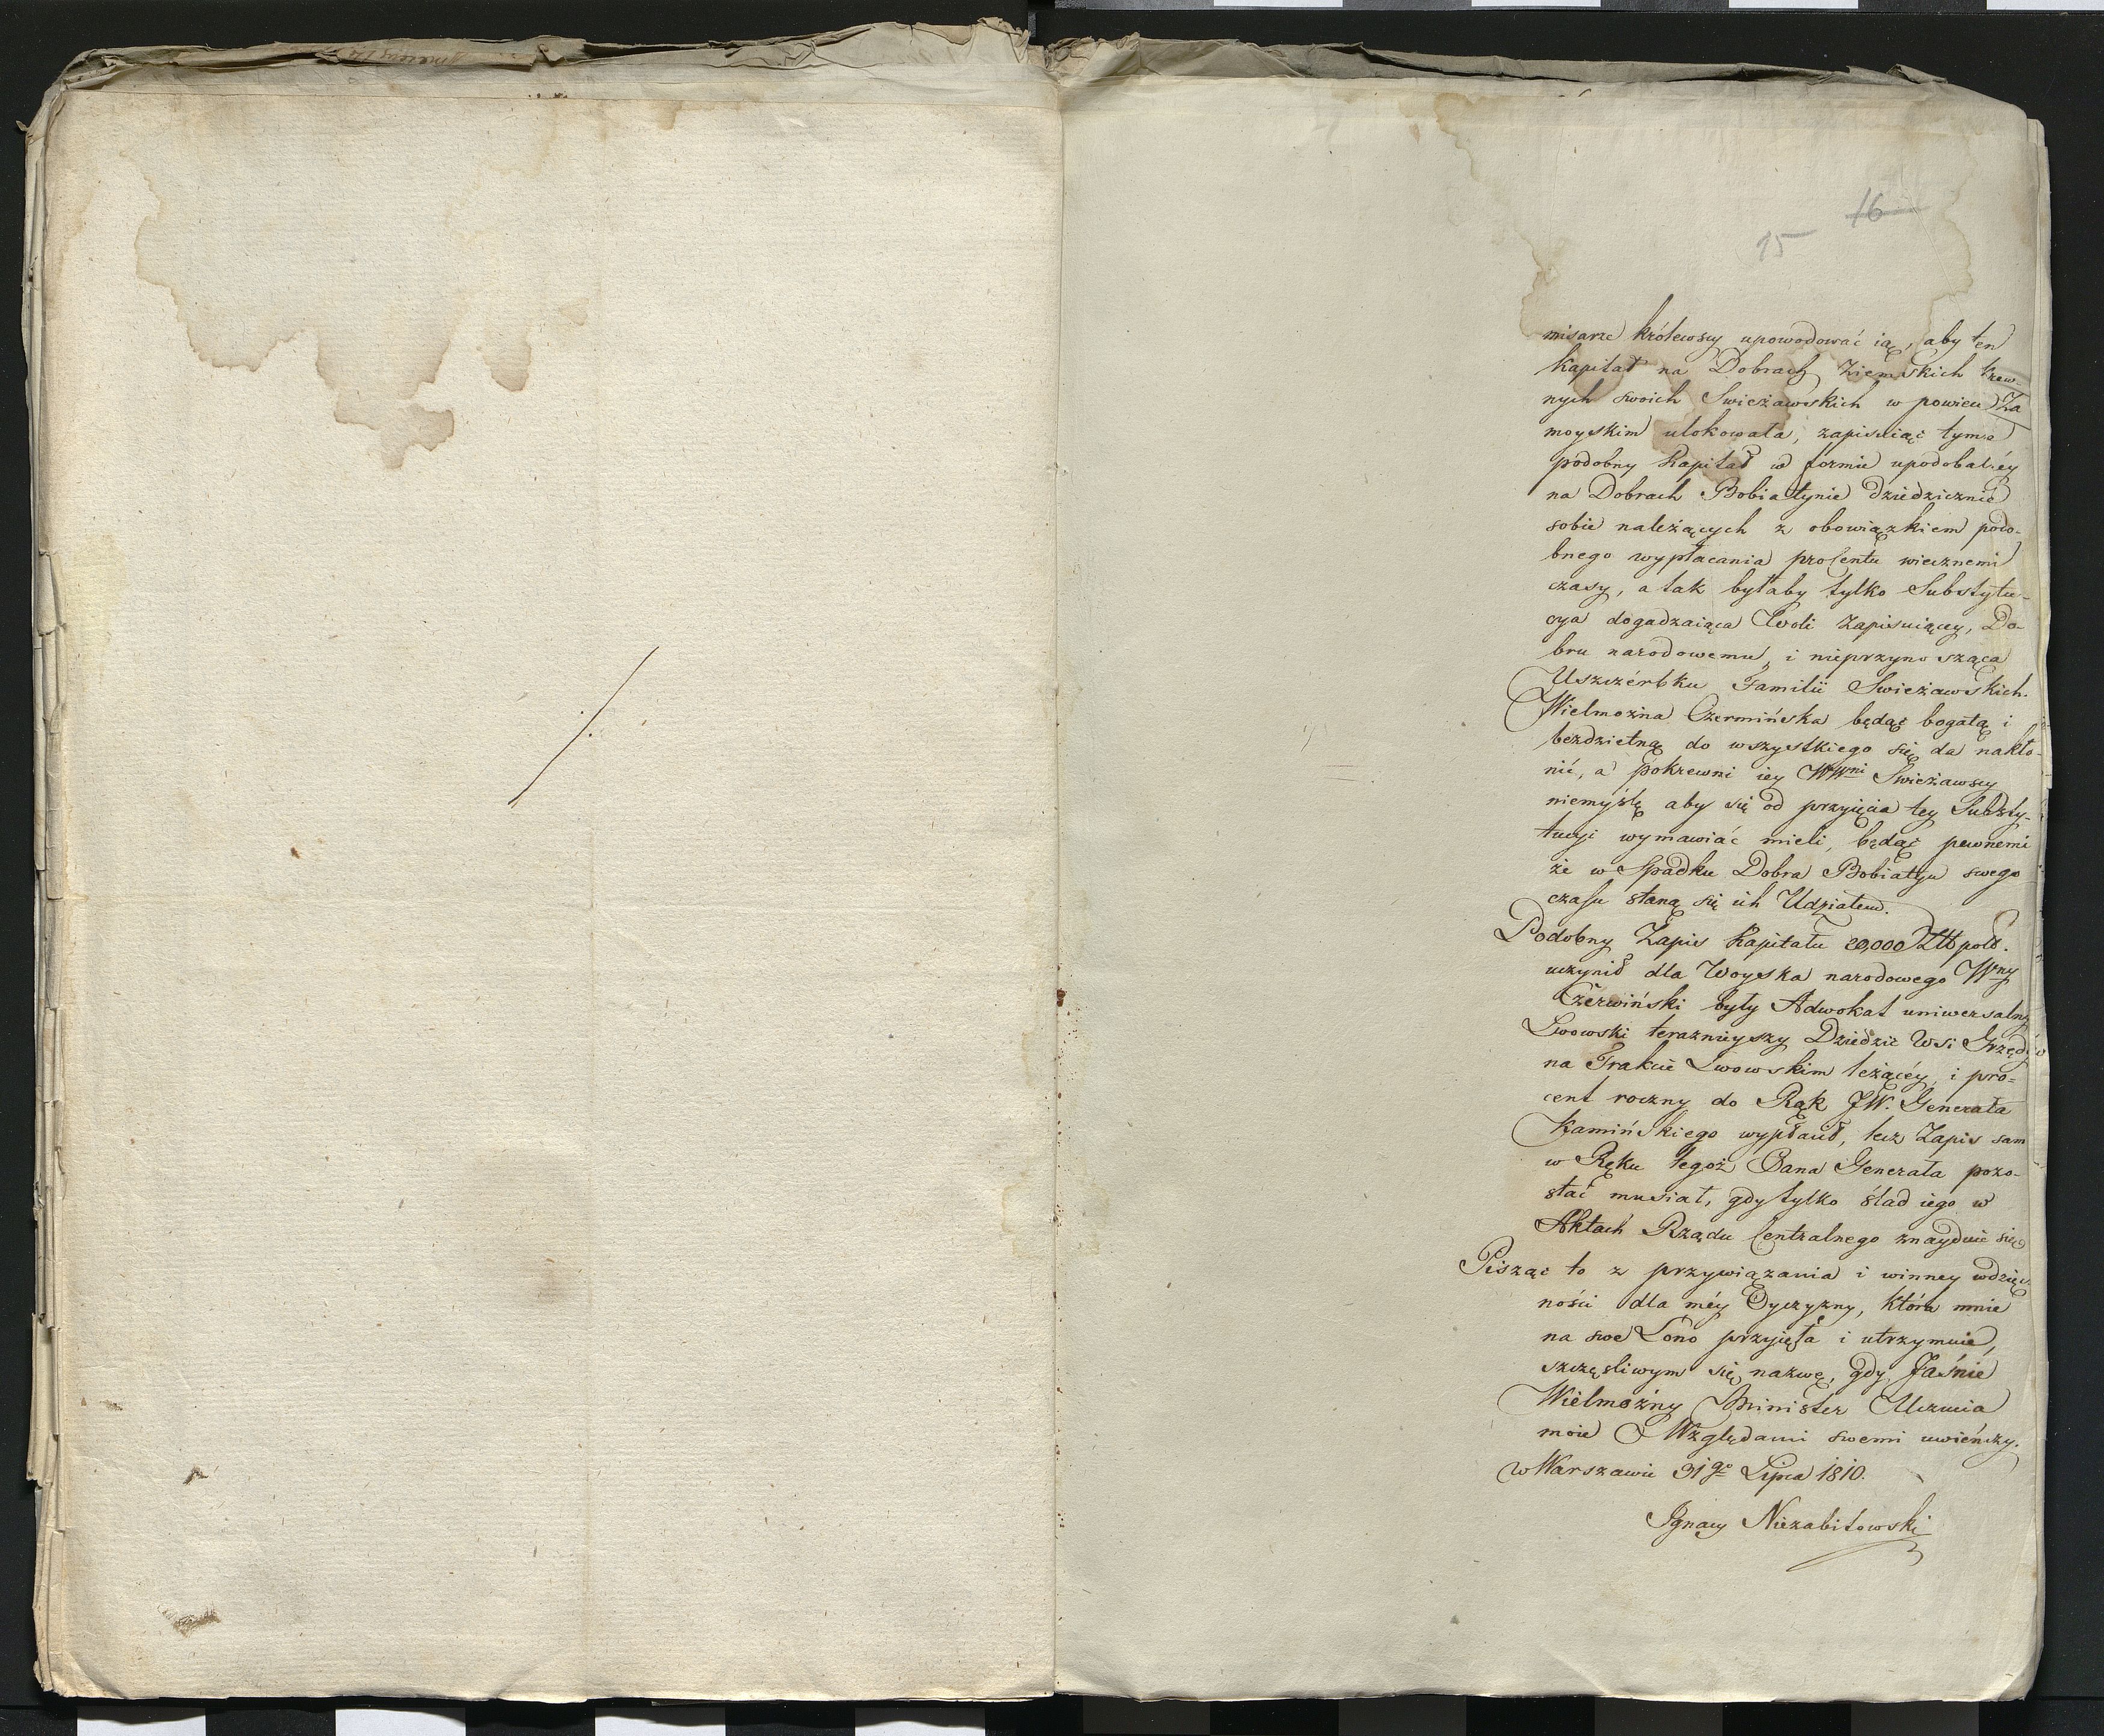 16
15
misarze królewscy upowodować ią, aby ten
Kapitał na Dobrach Ziemskich krew-
nych swoich Swieżawskich w powiecie Za
moyskim ulokowała, zapisuiąc tymże
podobny Kapitał w formie upodobaléy
na Dobrach Bobiatynie dziedzicznie
sobie należących z obowiązkiem podo-
bnego wypłacania procentu wiecznemi
czasy, a tak byłaby tylko Substytu-
cya dogadzaiąca Woli Zapisuiącey, Do-
bru narodowemu, i nieprzynosząca
Uszczérbku Familii Swieżawskich.
Wielmożna Czermińska będąc bogatą i
bezdzietną do wszystkiego się da nakło-
nić, a pokrewni iey WWni Swieżawscy
niemyślę aby się od przyięcia tey Substy-
tucyi wymawiać mieli, będąc pewnemi
że w Spadku Dobra Bobiatyn swego
czasu staną się ich Udziałem.
Podobny Zapis Kapitału 20,000 Złł pols.
uczynił dla Woyska narodowego Wny
Czerwiński były Adwokat uniwersalny
Lwowski teraznieyszy Dziedzic Wsi Grzędy
na Trakcie Lwowskim leżącéy, i pro=
cent roczny do Rąk JW. Generała
Kamińskiego wypłacił, lecz Zapis sam
w Ręku tegoż Pana Generała pozo-
stać musiał, gdy tylko ślad iego w
Aktach Rządu Centralnego znayduie się
Pisząc to z przywiązania i winney wdzięcz
ności dla méy Oyczyzny, która mnie
na swe Łono przyięła i utrzymuie,
szczęśliwym się nazwę, gdy Jaśnie
Wielmożny Minister Uczucia
moie Względami swemi uwieńczy.
w Warszawie 31go Lipca 1810.
Ignacy Niezabitowski